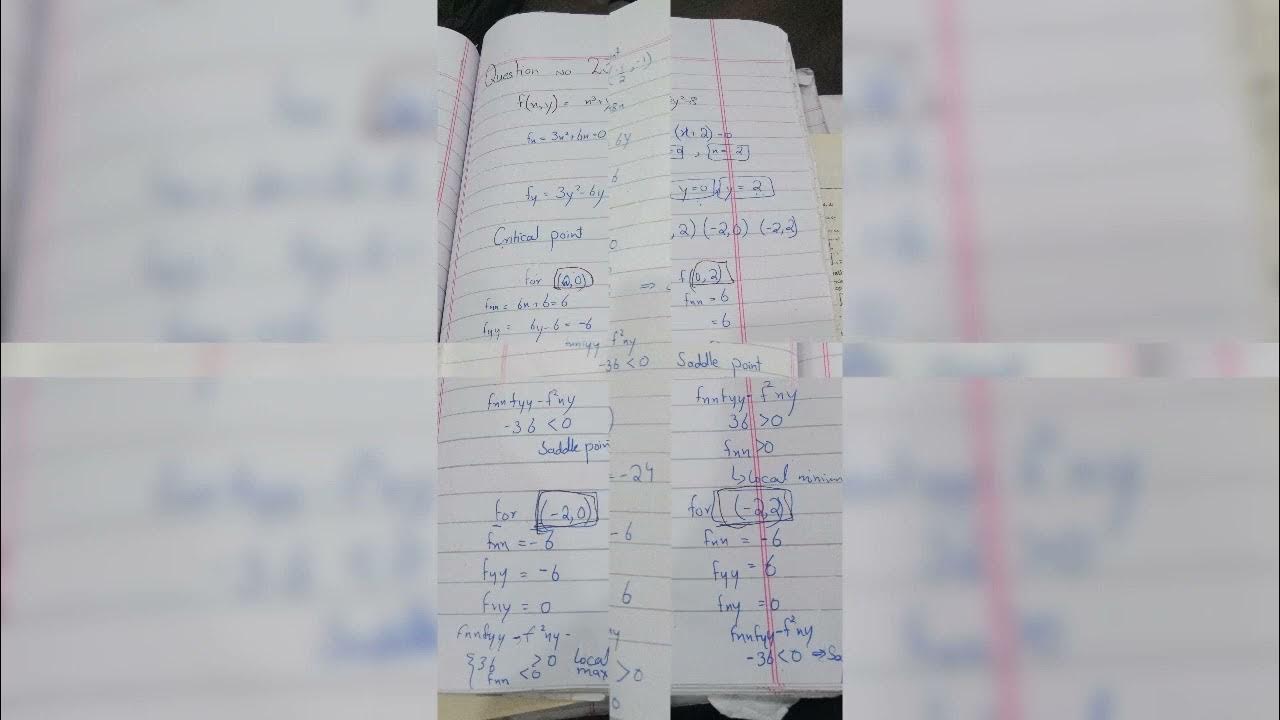 Question no 2
(1/2, -1)
f(x,y) = x³+y
y²-8
fx = 3x²+6x=0
6y
(x+2)=0
x=-2
fy = 3y²-6y
y=0, y=2
Critical point
,2) (-2,0) (-2,2)
for (0,0)
⇒
f(0,2)
fxx = 6x+6=6
fxx = 6
fyy = 6y-6 = -6
=6
f²xy
-36 <0
Saddle point
fxxfyy-f²xy
-36 <0
Saddle poin
fxxfyy-f²xy
36 >0
fxx>0
↳Local minimum
= -24
for (-2,0)
fxx = -6
fyy = -6
fxy = 0
fxxfyy - f²xy -
36 >0 Local
fxx <0 max
-6
6
>0
0
for (-2,2)
fxx = -6
fyy = 6
fxy = 0
fxxfyy-f²xy
-36 <0 ⇒Sa